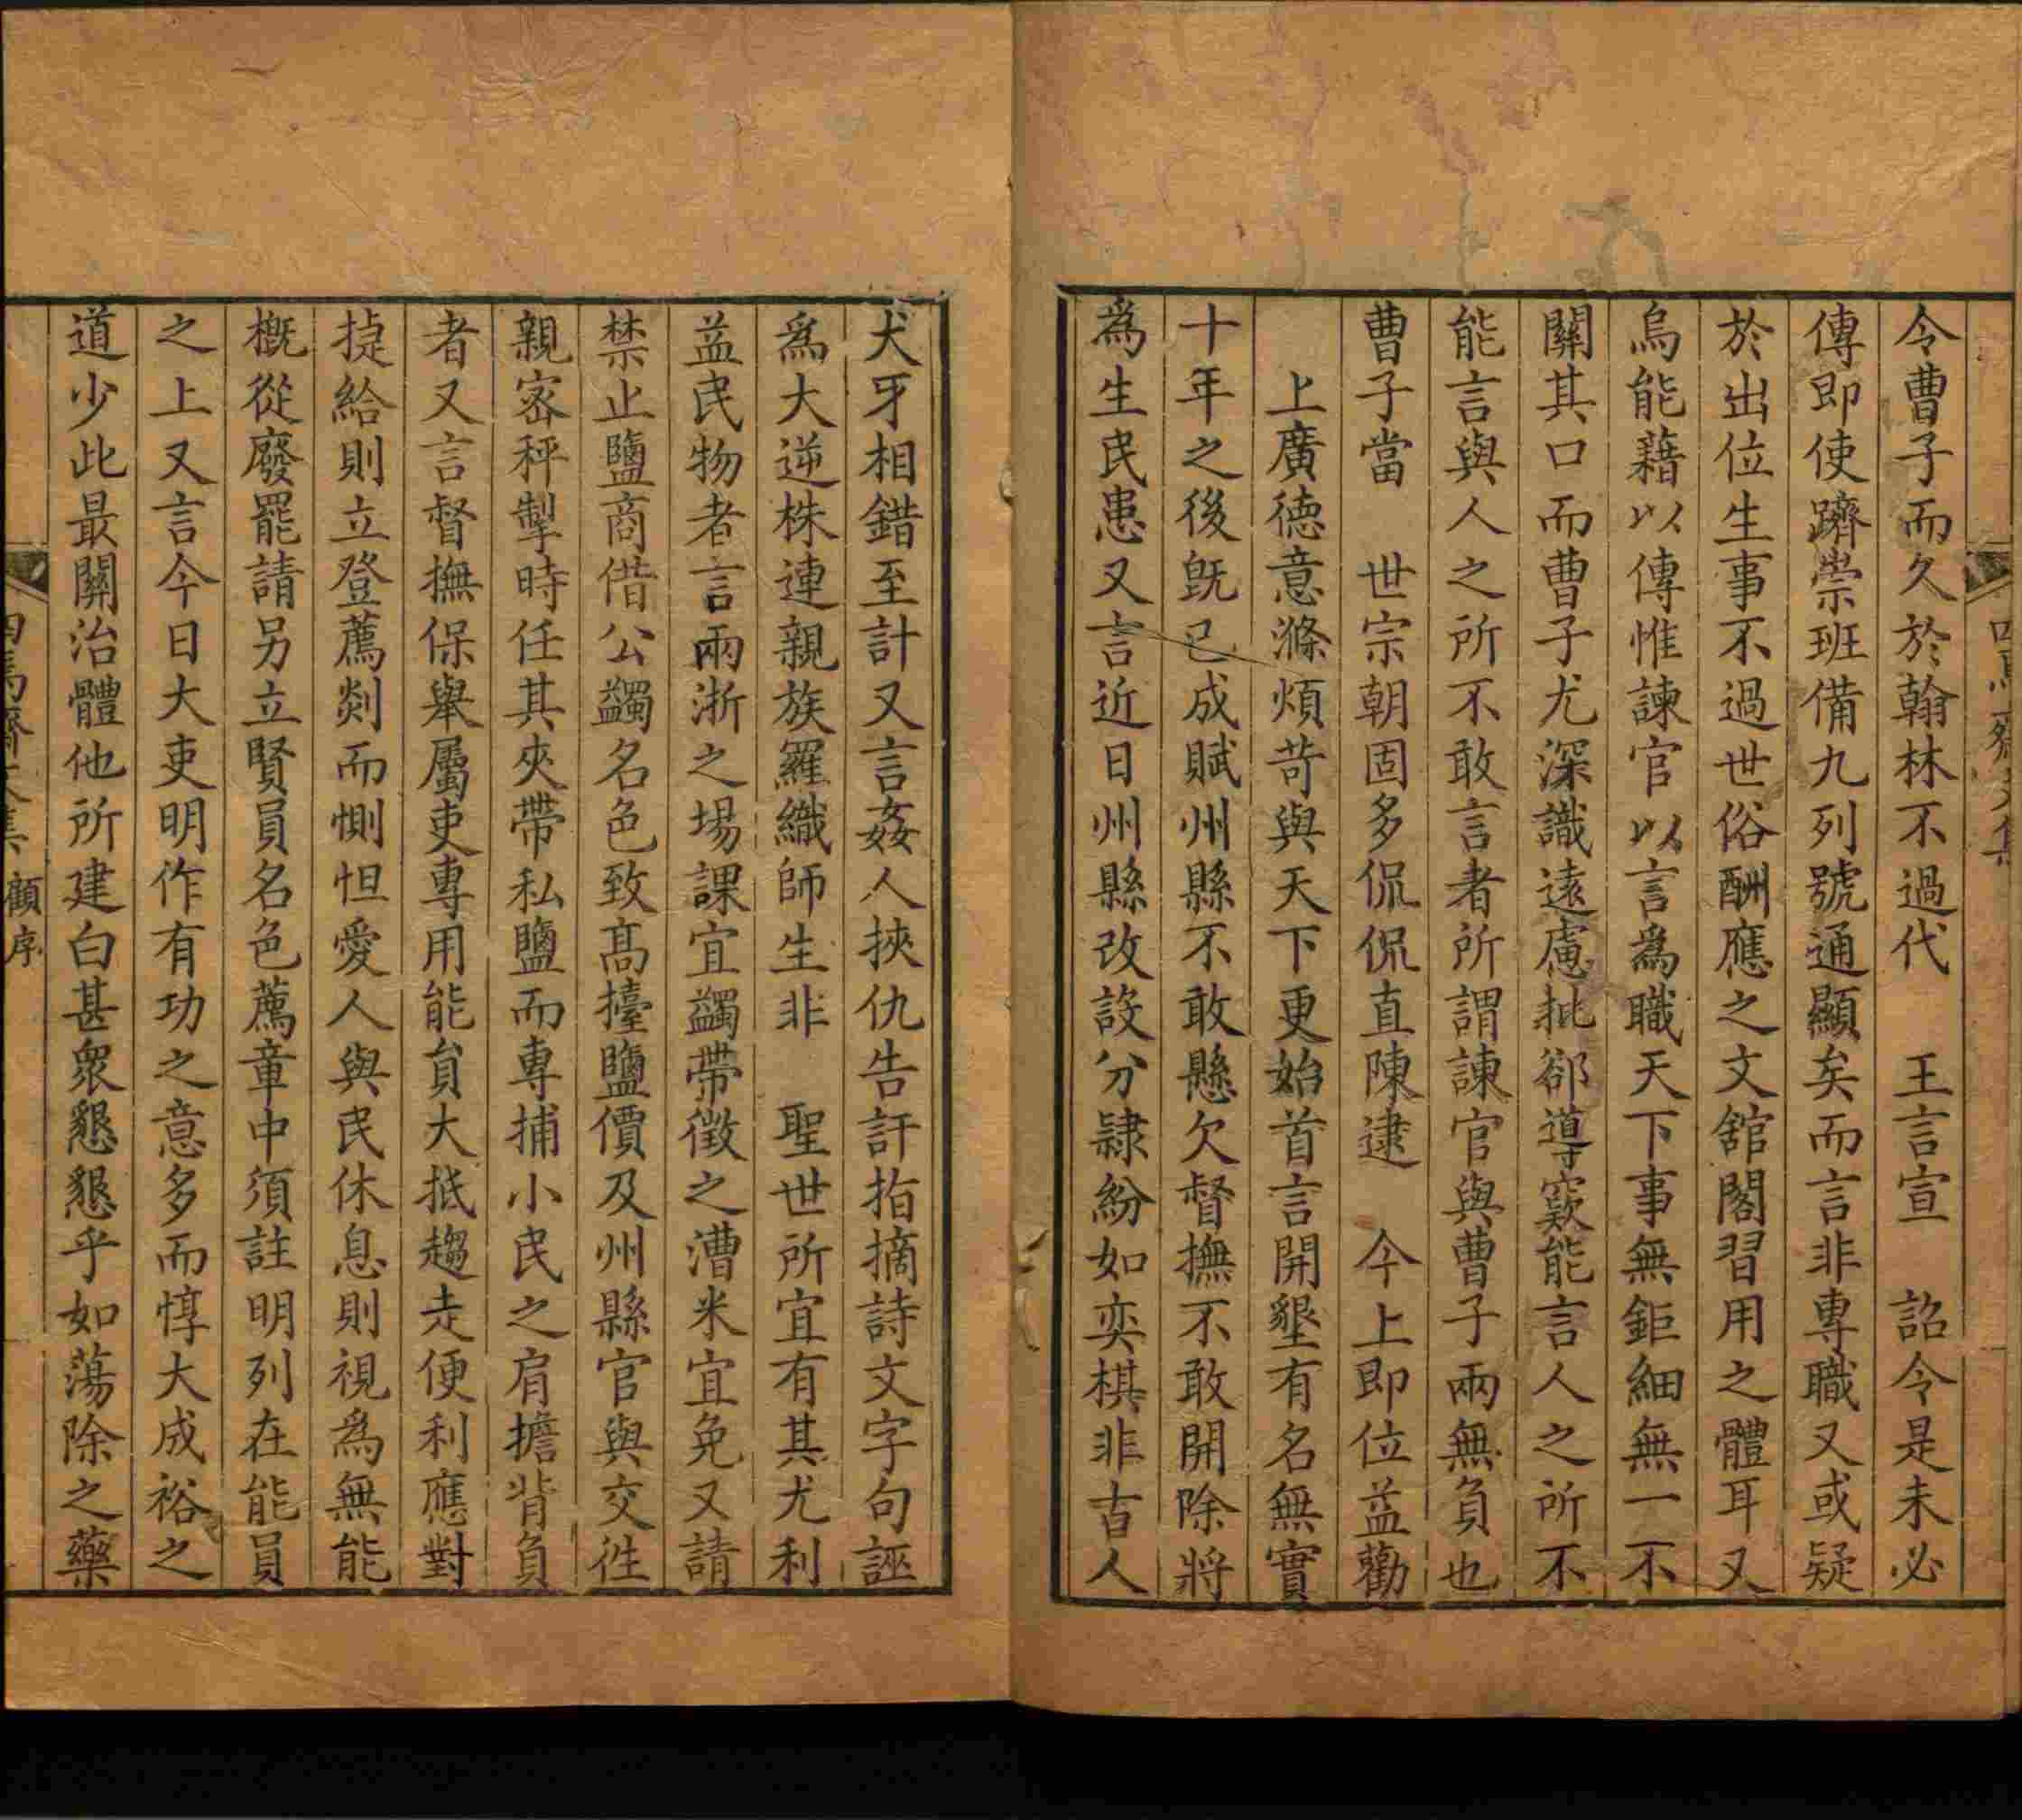 令曹子而久於翰林不過代　王言宣　詔令是未必
傳即使躋崇班備九列號通顯矣而言非專職又或疑
於出位生事不過世俗酬應之文舘閣習用之體耳又
烏能藉以傳惟諫官以言為職天下事無鉅細無一不
關其口而曹子尤深識遠慮批郤導窾能言人之所不
能言與人之所不敢言者所謂諫官與曹子兩無負也
曹子當　世宗朝固多侃侃直陳逮　今上即位益勸
上廣德意滌煩苛與天下更始首言開墾有名無實
十年之後旣已成賦州縣不敢懸欠督撫不敢開除將
為生民患又言近日州縣改設分隷紛如奕棋非吉人
犬牙相錯至計又言姦人挾仇告訐指摘詩文字句誣
為大逆株連親族羅織師生非　聖世所宜有其尤利
益民物者言兩浙之場課宜蠲帶徵之漕米宜免又請
禁止鹽商借公蠲名色致高擡鹽價及州縣官與交徃
親密秤掣時任其夾帶私鹽而專捕小民之肩擔背負
者又言督撫保舉屬吏專用能員大抵趨走便利應對
捷給則立登薦剡而惻怛愛人與民休息則視為無能
概從廢罷請另立賢員名色薦章中須註明列在能員
之上又言今日大吏明作有功之意多而惇大成裕之
道少此最關治體他所建白甚衆懇懇乎如蕩除之藥
四焉齋文集　顧序